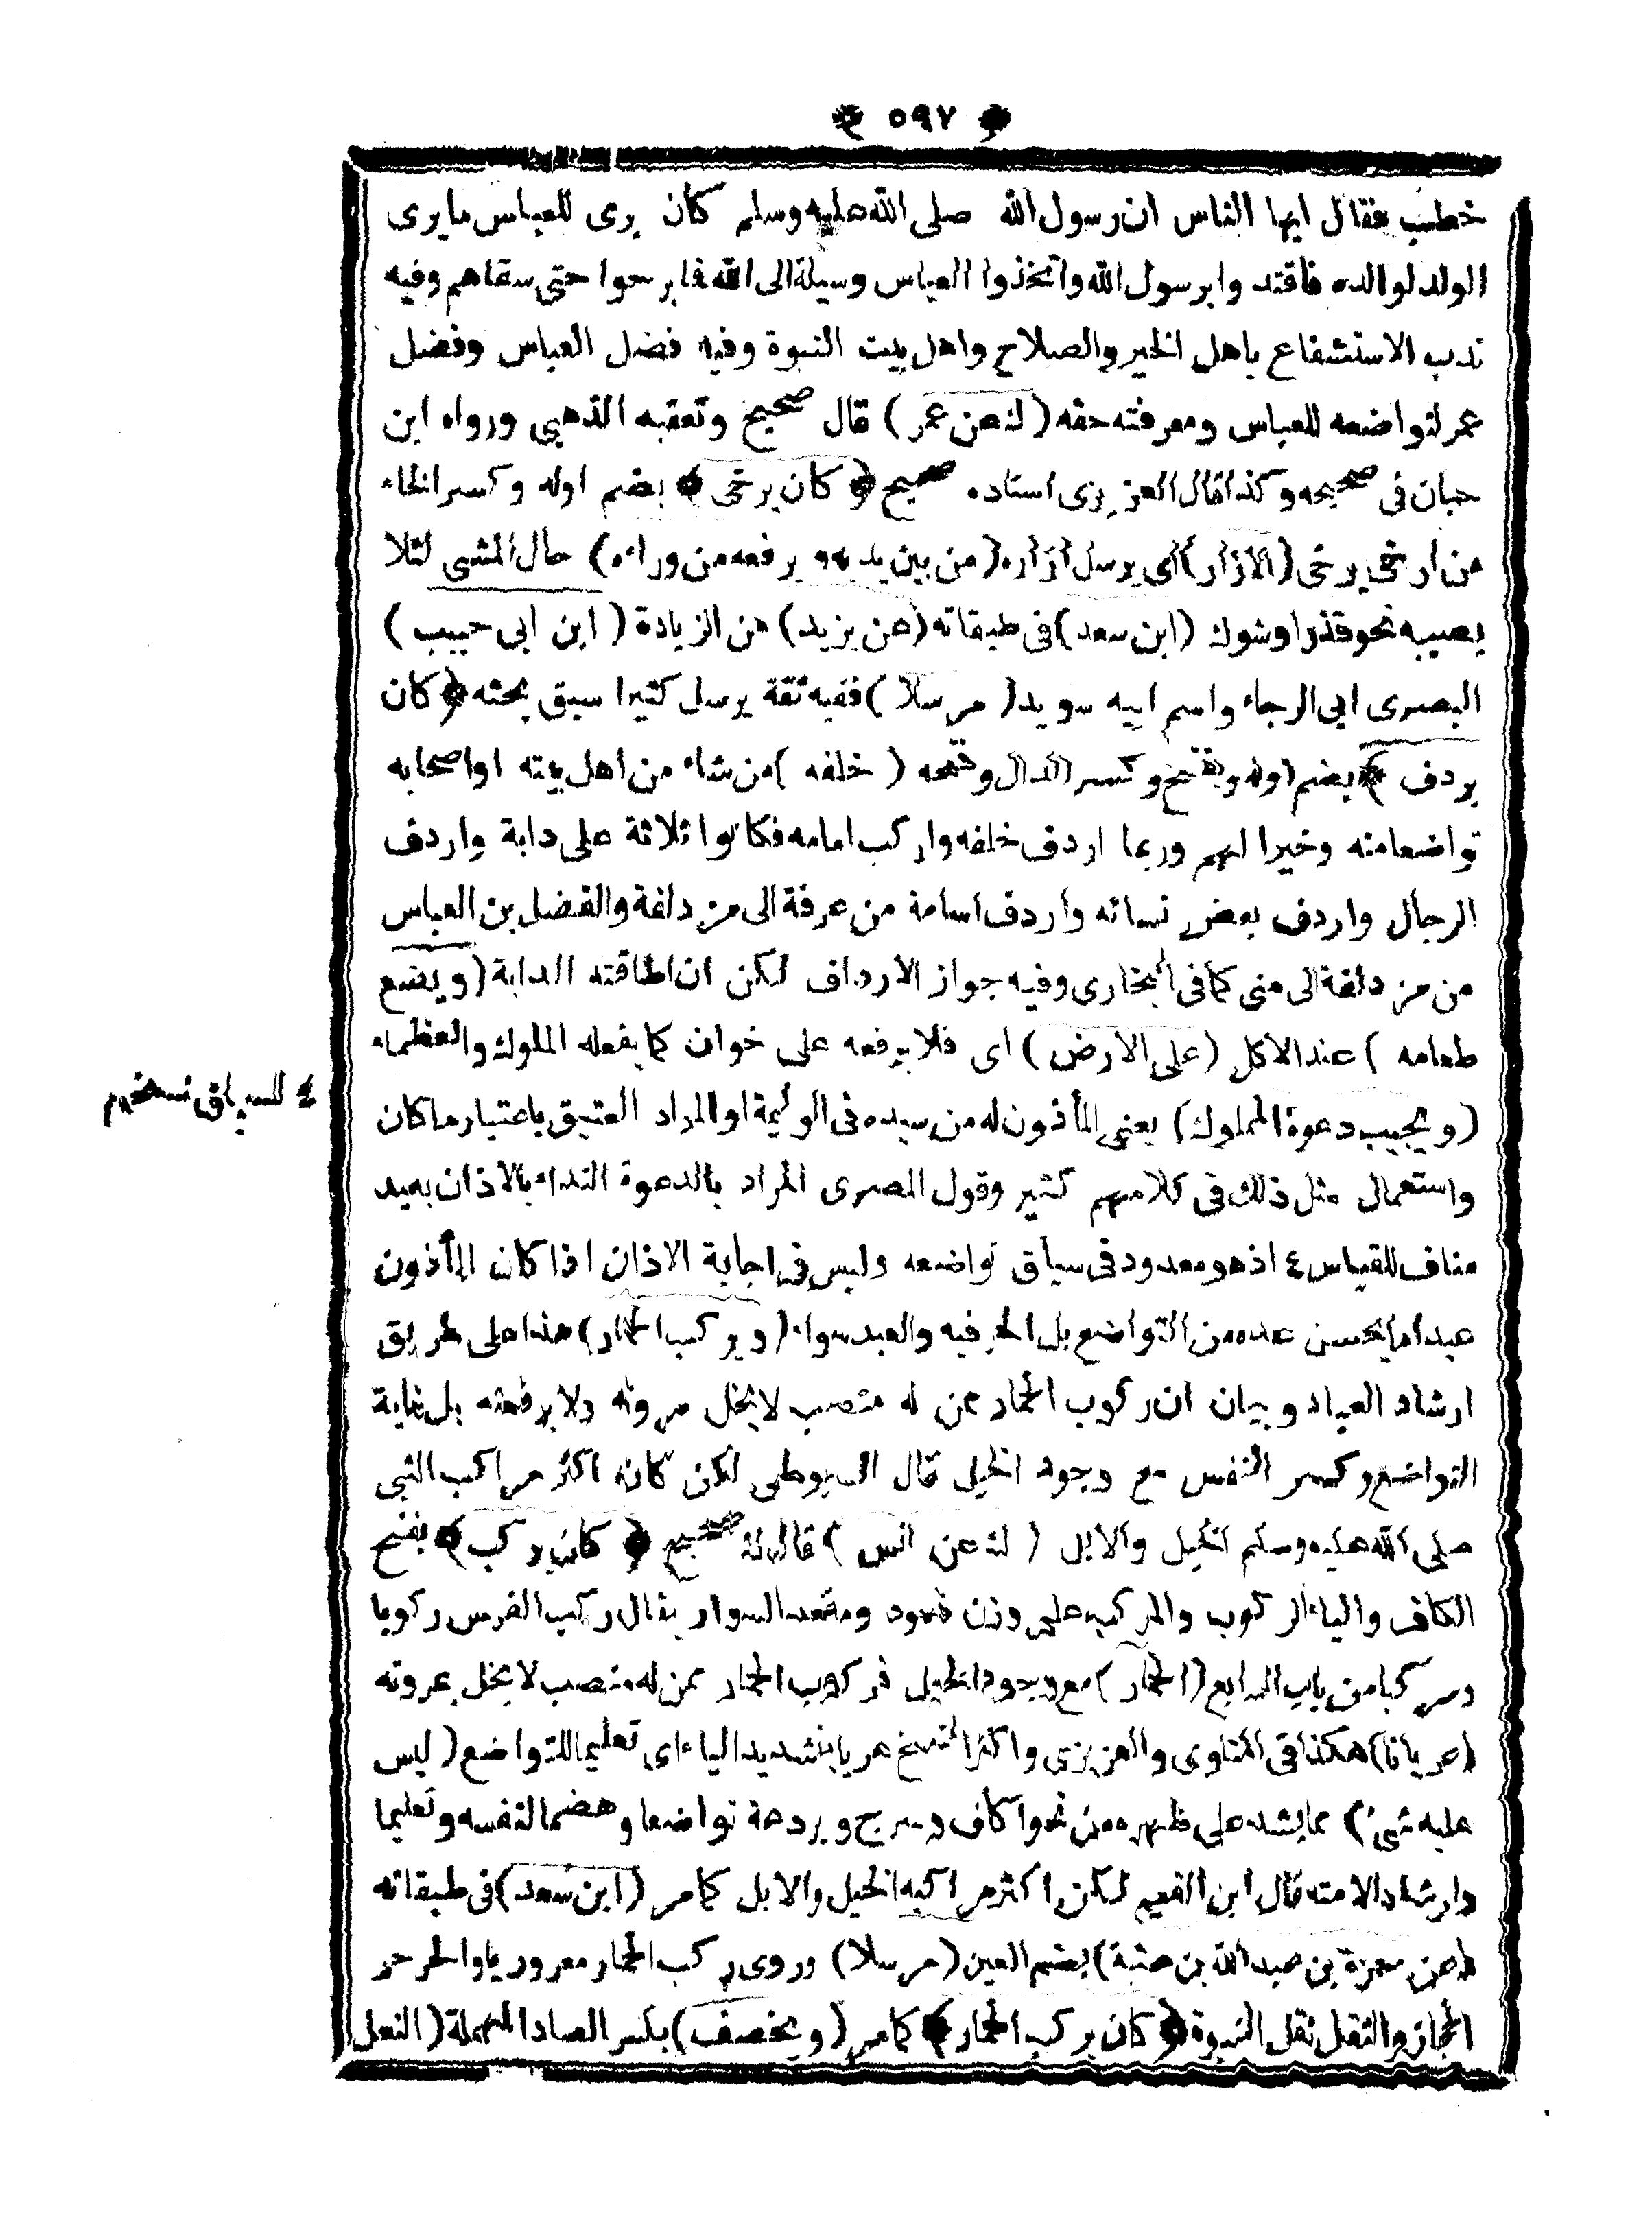 ﴿ ٥٩٧ ﴾
خطب فقال ايها الناس ان رسول الله صلى الله عليه وسلم كان يرى للعباس ما يرى
الولد لوالده فاقتدوا برسول الله واتخذوا العباس وسيلة الى الله فابرحوا حتى سقاهم وفيه
ندب الاستشفاع باهل الخير والصلاح واهل بيت النبوة وفيه فضل العباس وفضل
عمر لتواضعه للعباس ومعرفته حقه (ك عن عمر) قال صحيح وتعقبه الذهبي ورواه ابن
حبان فى صحيحه وكذا قال العزيزى اسناده صحيح ﴿ كان يرخى ﴾ بضم اوله وكسر الخاء
من ارخى يرخى (الازار) اى يرسل ازاره (من بين يديه ويرفعه من ورائه) حال المشى لئلا
يصيبه نحو قذر او شوك (ابن سعد) فى طبقاته (عن يزيد) من الزيادة (ابن ابى حبيب)
البصرى ابى الرجاء واسم ابيه سويد (مرسلا) ففيه ثقة يرسل كثيرا سبق بحثه ﴿ كان
يردف ﴾ بضم اوله ويفتح وكسر الدال وفتحه (خلفه) من شاء من اهل بيته او اصحابه
تواضعا منه وخيرا لهم وربما اردف خلفه واركب امامه فكانوا ثلاثة على دابة واردف
الرجال واردف بعض نسائه واردف اسامة من عرفة الى مزدلفة والفضل بن العباس
من مزدلفة الى منى كما فى البخارى وفيه جواز الارداف لكن ان اطاقته الدابة (ويضع
طعامه) عند الاكل (على الارض) اى فلا يرفعه على خوان كما يفعله الملوك والعظماء
(ويجيب دعوة المملوك) يعنى المأذون له من سيده فى الوليمة او المراد العتيق باعتبار ما كان
واستعمال مثل ذلك فى كلامهم كثير وقول المصرى المراد بالدعوة النداء بالاذان بعيد
مناف للقياس ٤ اذ هو معدود فى سياق تواضعه وليس فى اجابة الاذان اذا كان المأذون
عبدا ما يحسن عده من التواضع بل الحر فيه والعبد سواء (ويركب الحمار) هذا على طريق
ارشاد العباد وبيان ان ركوب الحمار ممن له منصب لا يخل مروئه ولا برفعته بل غاية
التواضع وكسر النفس مع وجود الخيل قال السيوطى لكن كانه اكثر مراكب النبى
صلى الله عليه وسلم الخيل والابل (ك عن انس) قال ك صحيح ﴿ كان يركب ﴾ بفتح
الكاف والياء الركوب والمركب على وزن قعود ومقعد السوار يقال ركب الفرس ركوبا
ومركبا من باب الرابع (الحمار) مع وجود الخيل فركوب الحمار ممن له منصب لا يخل بمروته
(عريانا) هكذا فى المناوى والعزيزى واكثر النسخ عريا بتشديد الياء اى تعليما للتواضع (ليس
عليه شئ) مما يشد على ظهره من نحو اكاف وسرج وبردعة تواضعا وهضما لنفسه وتعليما
وارشادا لامته قال ابن القيم لكن اكثر مراكبه الخيل والابل كما مر (ابن سعد) فى طبقاته
(عن حمزة بن عبد الله بن عتبة) بضم العين (مرسلا) وروى ركب الحمار معروريا والحرحر
الحجاز والثقل ثقل النبوة ﴿ كان يركب الحمار ﴾ كما مر (ويخصف) بكسر الصاد المهملة (النعل)
٤ للسياق نسخهم